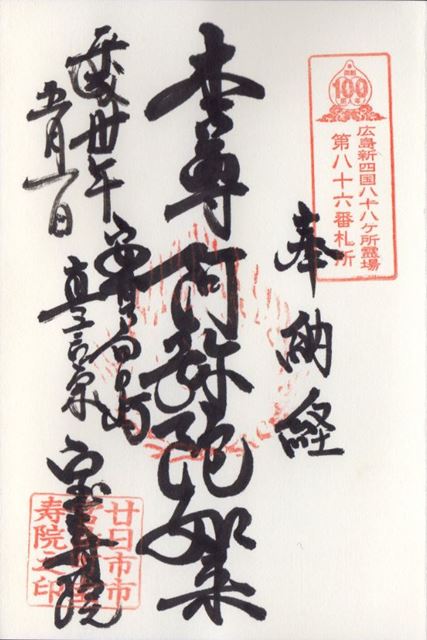 100
広島新四国八十八ケ所霊場
第八十六番札所
奉納経
本尊阿弥陀如来
安芸宮島
真言宗
宝寿院
平成卅年
五月一日
廿日市市
寿院之印